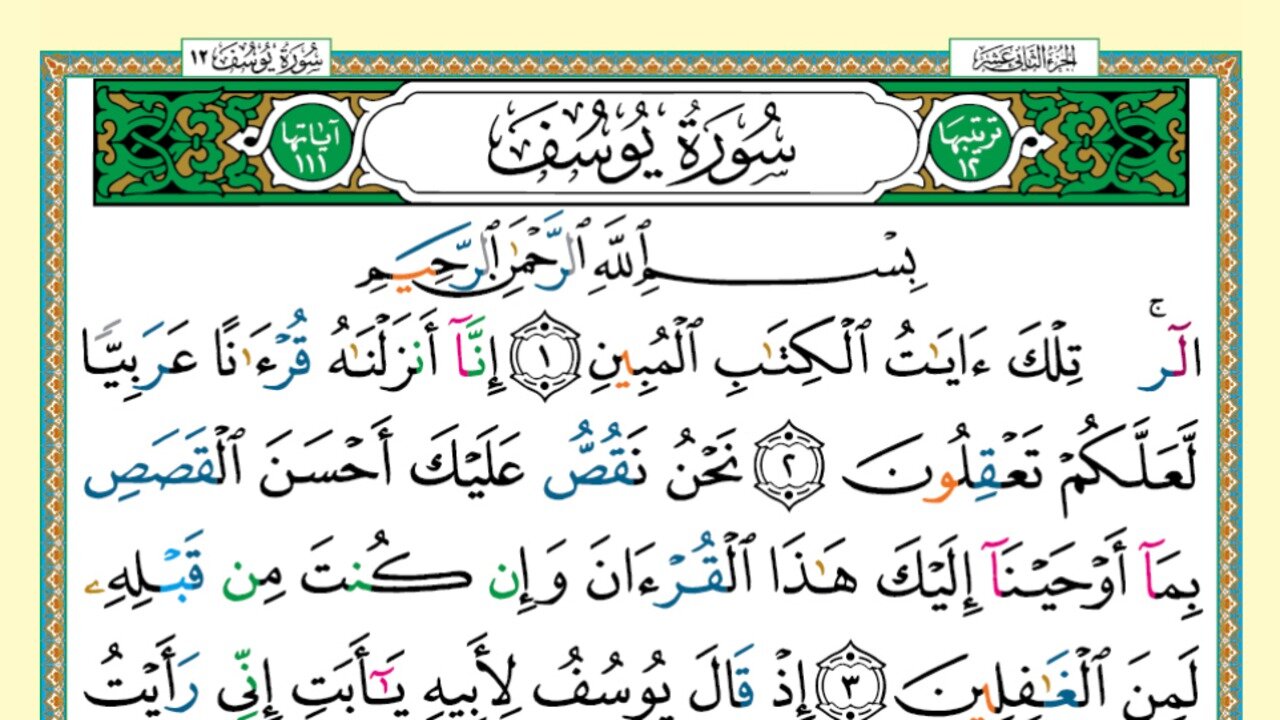 الجزء الثاني عشر
سورة يوسف ١٢
ترتيبها ١٢
سُورَةُ يُوسُفَ
آياتها ١١١
بِسْمِ ٱللَّهِ ٱلرَّحْمَٰنِ ٱلرَّحِيمِ
الٓرۚ تِلْكَ ءَايَٰتُ ٱلْكِتَٰبِ ٱلْمُبِينِ ١ إِنَّآ أَنزَلْنَٰهُ قُرْءَٰنًا عَرَبِيًّا
لَّعَلَّكُمْ تَعْقِلُونَ ٢ نَحْنُ نَقُصُّ عَلَيْكَ أَحْسَنَ ٱلْقَصَصِ
بِمَآ أَوْحَيْنَآ إِلَيْكَ هَٰذَا ٱلْقُرْءَانَ وَإِن كُنتَ مِن قَبْلِهِۦ
لَمِنَ ٱلْغَٰفِلِينَ ٣ إِذْ قَالَ يُوسُفُ لِأَبِيهِ يَٰٓأَبَتِ إِنِّي رَأَيْتُ